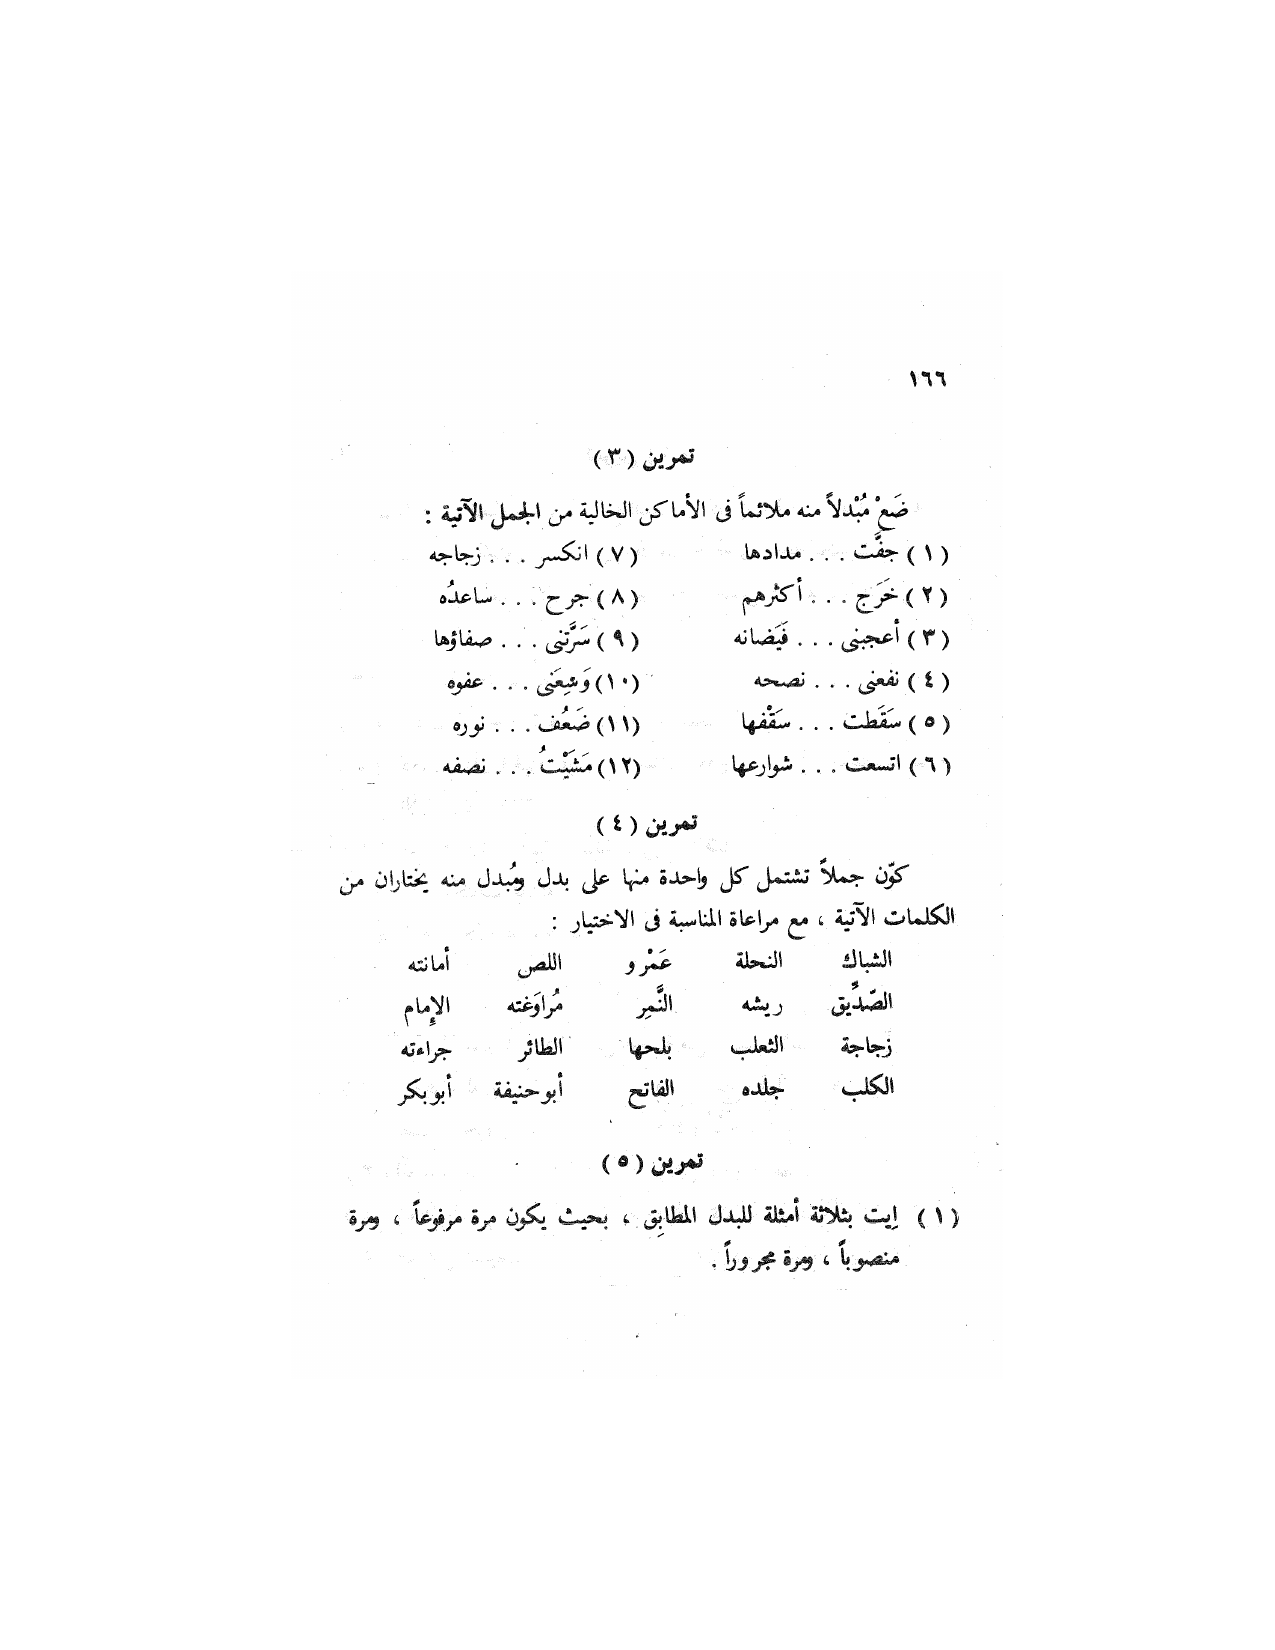 ١٦٦
تمرين ( ٣ )
ضَعْ مُبْدلاً منه ملائماً فى الأماكن الخالية من الجمل الآتية :
( ١ ) جفَّت . . . مدادها ( ٧ ) انكسر . . . زجاجه
( ٢ ) خَرَج . . . أكثرهم ( ٨ ) جرح . . . ساعدُه
( ٣ ) أعجبنى . . . فَيَضانه ( ٩ ) سَرَّتنى . . . صفاؤها
( ٤ ) نفعنى . . . نصحه (١٠) وَسِعَنى . . . عفوه
( ٥ ) سَقَطت . . . سَقْفها (١١) ضَعُف . . . نوره
( ٦ ) اتسعت . . . شوارعها (١٢) مَشَيْتُ . . . نصفه
تمرين ( ٤ )
كوّن جملاً تشتمل كل واحدة منها على بدل ومُبدل منه يختاران من
الكلمات الآتية ، مع مراعاة المناسبة فى الاختيار :
الشباك النحلة عَمْرو اللص أمانته
الصّدِّيق ريشه النَّمِر مُراوَغته الإِمام
زجاجة الثعلب بلحها الطائر جراءته
الكلب جلده الفاتح أبو حنيفة أبو بكر
تمرين ( ٥ )
( ١ ) اِيت بثلاثة أمثلة للبدل المطابِق ، بحيث يكون مرة مرفوعاً ، ومرة
منصوباً ، ومرة مجروراً .